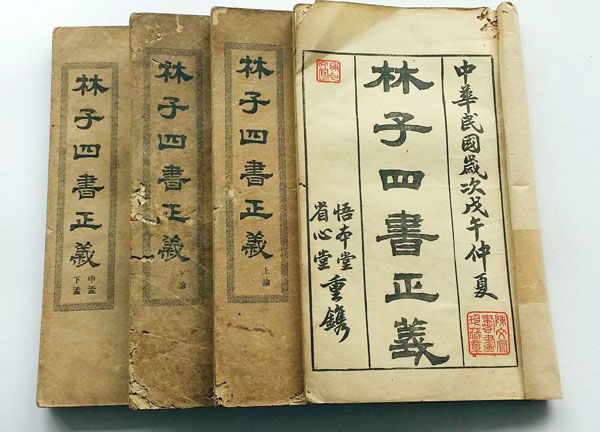 中華民國歲次戊午仲夏
林子四書正義
悟本堂
省心堂
重鐫
林子四書正義
上論
林子四書正義
下論
林子四書正義
中孟
下孟